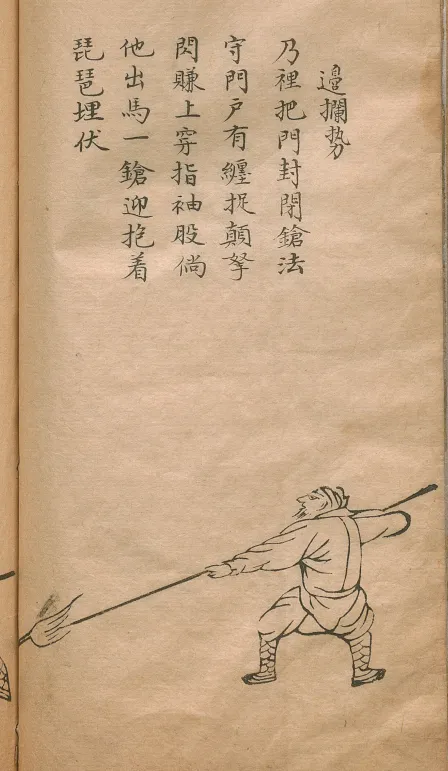 邉攔势
乃裡把門封閉鎗法
守門戸有纏捉顛拏
閃賺上穿指袖股倘
他出馬一鎗迎抱着
琵琶埋伏